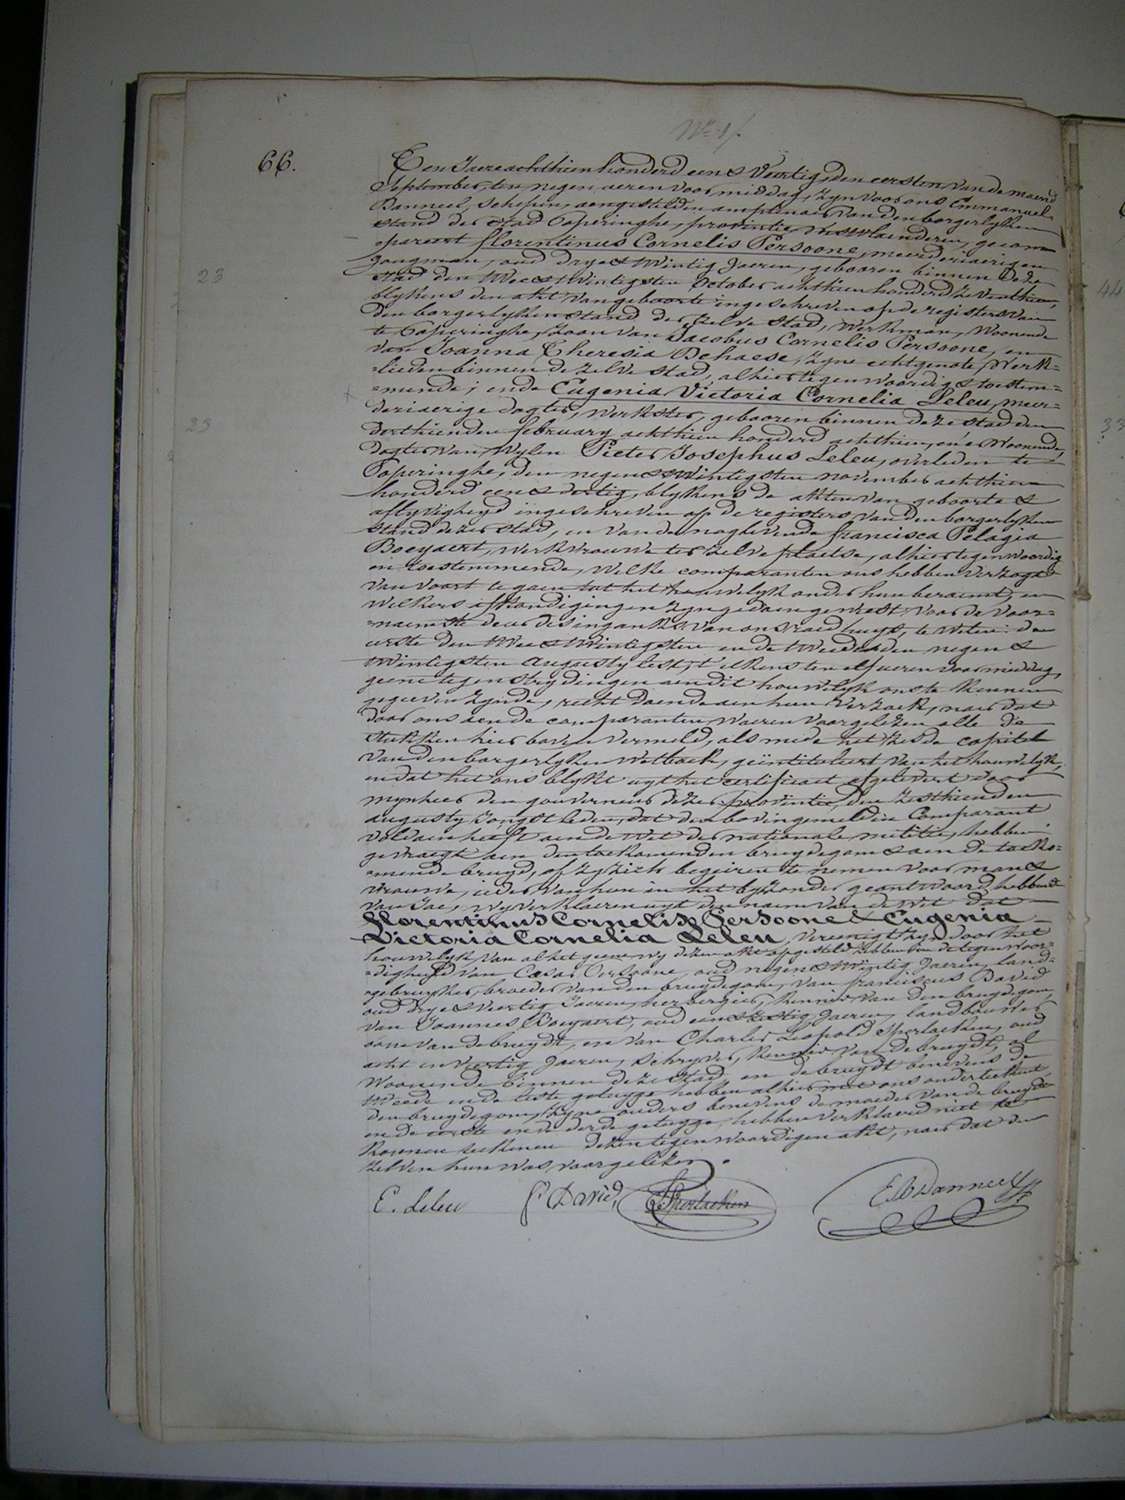 66.
Den Jaere achthien honderd een & Veertig, den eersten van de maend
September, ten negen ueren voormiddag, zyn voor ons Emmanuel
Banneel, schepen, aengestelden amptenaer van den borgerlyken
stand der stad Poperinghe, provintie Westvlaenderen, gecom-
pareert florentinus Cornelis Persoone, meerderjaerigen
jongman, oud drye & twintig Jaeren, gebooren binnen deze
23
stad den twee & twintigsten october achthien honderd zeventhien,
blykens den akt van geboorte ingeschreven op de registers van
den borgerlyken stand der zelve stad, Werkman, Woonende
te Poperinghe, zoon van Jacobus Cornelis Persoone, en
van Joanna Theresia Dehaese, zyne echtgenote, Werk-
lieden binnen de zelve stad, alhier tegenwoordig & toestem-
mende; ende Eugenia Victoria Cornelia Leleu, meer-
derjaerige dogter, Werkster, gebooren binnen deze stad den
25
derthienden february achthien honderd zesthien, en er Woonende,
dogter van Wylen Pieter Josephus Leleu, overleden te
Poperinghe, den negen & twintigsten november achthien
honderd een & dertig, blykens de akten van geboorte &
aflyvigheyd ingeschreven op de registers van den borgerlyken
stand dezer stad, en van de naglevende francisca Pelagia
Boeyaert, werkvrouwe ter zelve plaetse, alhier tegenwoordig
en toestemmende, Welke comparanten ons hebben verzogt
van voort te gaen tot het houwelyk onder hun beraemt, en
Welkers afkondigingen zyn gedaen geweest voor de voor-
naemste deur des ingangs van ons raedhuys, te weten: de
eerste den twee & twintigsten en de tweede den negen &
twintigsten Augusty lest, t'elkens ten elf ueren voormiddag,
geene tegenstrydingen aen dit houwelyk ons te kennen
gegeven zynde, recht doende aen hun verzoek, naer dat
door ons aen de comparanten waeren voorgelezen alle de
stukken hier boven vermeld, als mede het zesde capitel
van den borgerlyken Wetboek, geïntituleert van het houwelyk,
en dat het ons blykt uyt het certificaet afgelevert door
mynheer den gouverneur dezer provintie, den zesthienden
augusty jongstleden, dat den bovengemelden Comparant
voldaen heeft aen de wet der nationale militie, hebben
gevraegt aen den toekomenden bruydegom & aen de toeko-
mende bruyd, of zy zich begeiren te nemen voor man &
vrouwe, ieder van hun in het byzonder geantwoord hebbende
van Jae, Wy verklaeren uyt den naem van de Wet dat
florentinus Cornelis Persoone & Eugenia
Victoria Cornelia Leleu, vereenigt zyn door het
houwelyk, van al het gene wy dezen akt opgesteld hebben in de tegenwoor-
digheyd van Cesar Persoone, oud negen & twintig Jaeren, land-
gebruyker, broeder van den bruydegom, van franciscus David
oud drye & veertig Jaeren, herbergier, kennis van den bruydegom,
van Joannes Boeyaert, oud een & zestig Jaeren, landbouwer
oom van de bruyd, en van Charles Leopold Sperlaeken, oud
acht en veertig Jaeren, schryver, kennis van de bruydt, al
Woonende binnen deze stad en de bruydt benevens de
tweede en de leste getuyge hebben alhier met ons onderteekent,
den bruydegom, zyne ouders benevens de moeder van de bruydt
en de eerste en de derde getuyge, hebben verklaerd niet te
konnen teekenen dezen tegenwoordigen akt, naer dat den
zelven hun was voorgelezen.
E. Leleu f David Sperlaeken E. Banneel